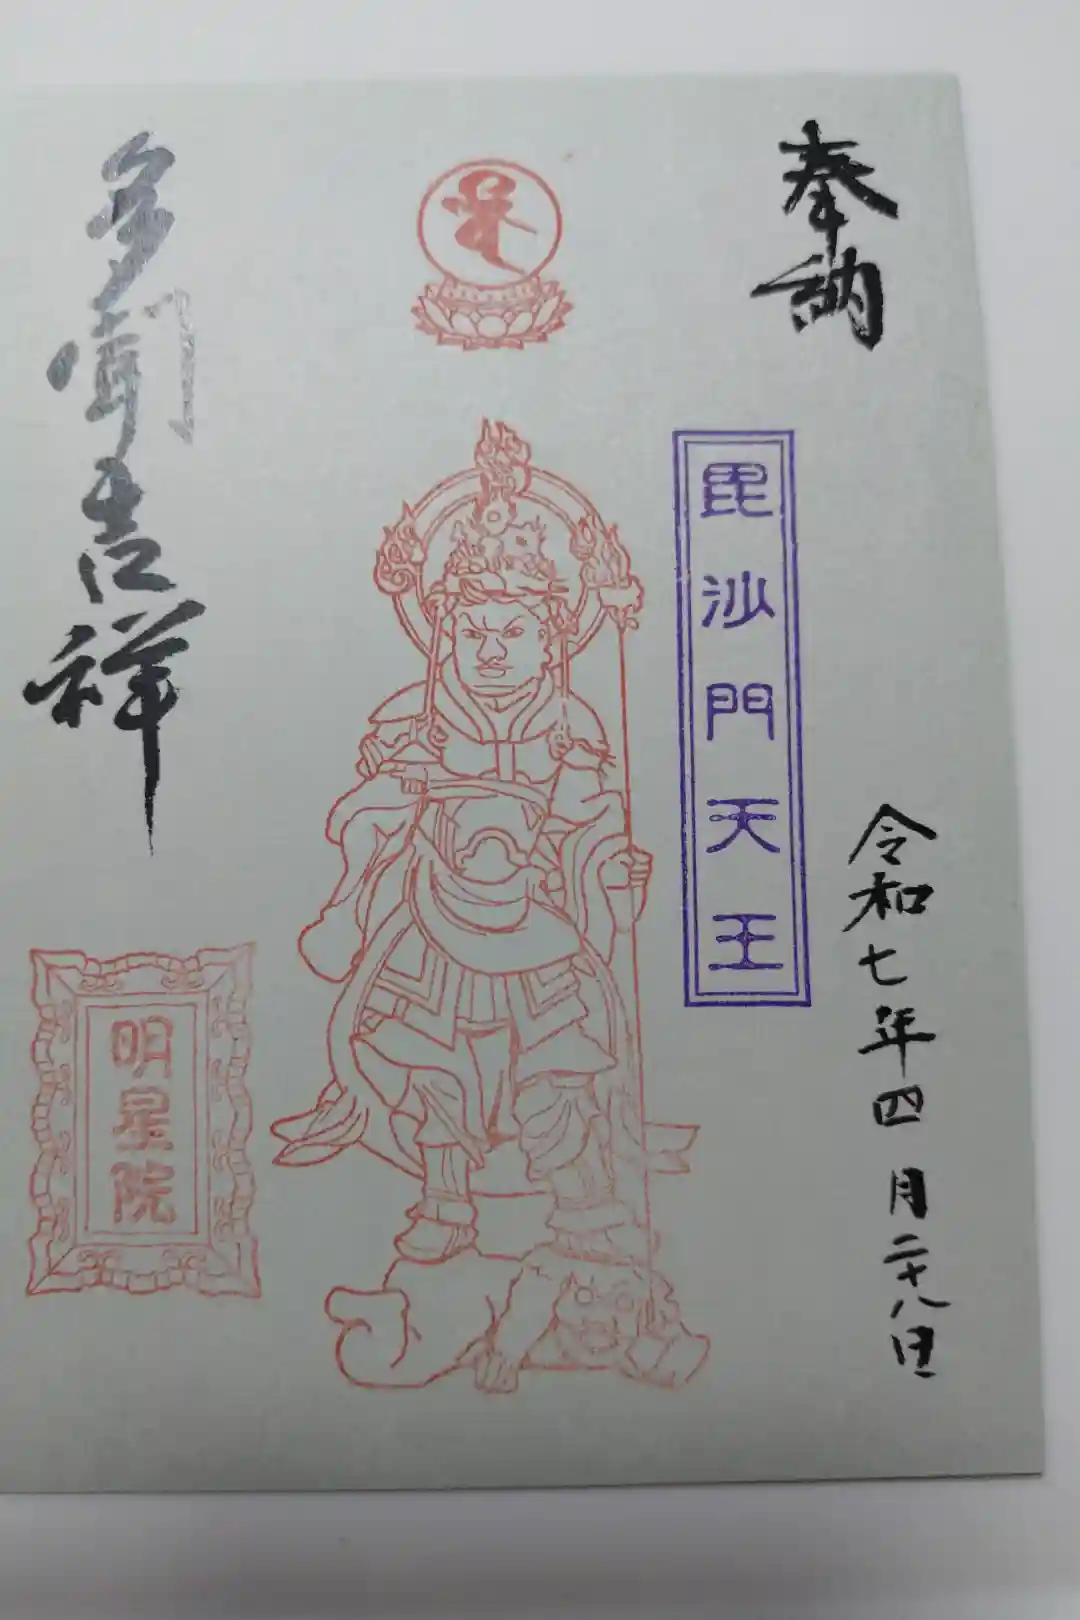 奉納
毘沙門天王
令和七年四月二十八日
多聞吉祥
明星院